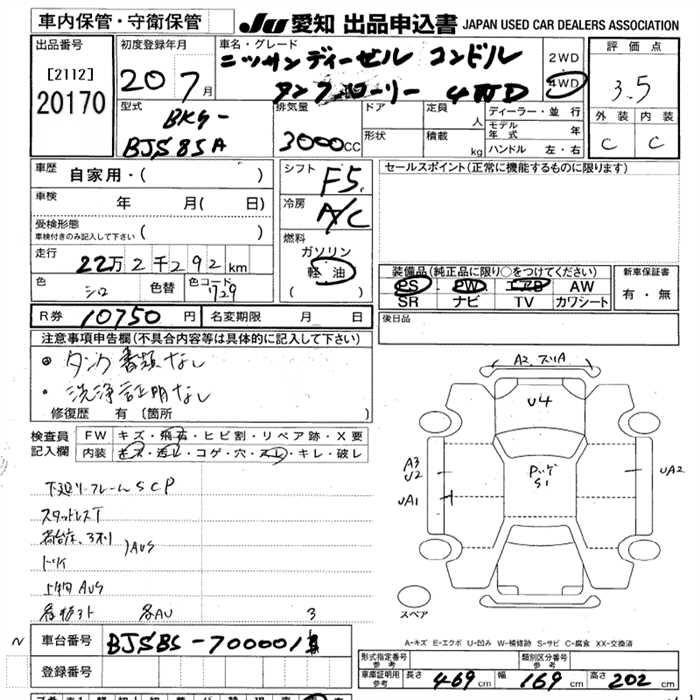 車内保管・守衛保管
JU 愛知 出品申込書 JAPAN USED CAR DEALERS ASSOCIATION
出品番号
[2112]
20170
初度登録年月
20 7月
車名・グレード
ニッサンディーゼル コンドル
タンクローリー 4WD
2WD
4WD
評価点
3.5
外装 内装
C C
型式
BKG-
BJS85A
排気量
3000CC
ドア
形状
定員
人
積載
kg
ディーラー・並行
モデル年式 年
ハンドル 左・右
車歴
自家用・( )
車検
年 月( 日)
受検形態
車検付きのみ記入して下さい ( )
走行
22万2千292km
色
シロ
色替
色コード
729
シフト
F5
冷房
A/C
燃料
ガソリン
軽油
( )
セールスポイント(正常に機能するものに限ります)
装備品(純正品に限り○をつけてください)
PS PW エアB AW
SR ナビ TV カワシート
新車保証書
有・無
R券 10750円
名変期限 月 日
後日品
注意事項申告欄(不具合内容等は具体的に記入して下さい)
タンク書類なし
洗浄証明なし
修復歴 有〔箇所 〕
検査員記入欄
FW キズ・飛石・ヒビ割・リペア跡・X要
内装 キズ・汚レ・コゲ・穴・スレ・キレ・破レ
下廻リ・フレームSCP
スタッドレスT
AUS
上物AUS
各AU
3
A2.スリA
U4
A3
U2
UA1
S1
UA2
スペア
A-キズ E-エクボ U-凹み W-補修跡 S-サビ C-腐食 XX-交換済
N
車台番号 BJS85-7000018
登録番号
形式指定番号
参考
類別区分番号
参考
車庫証明用
参考
長さ 469cm 幅 169cm 高さ 202cm